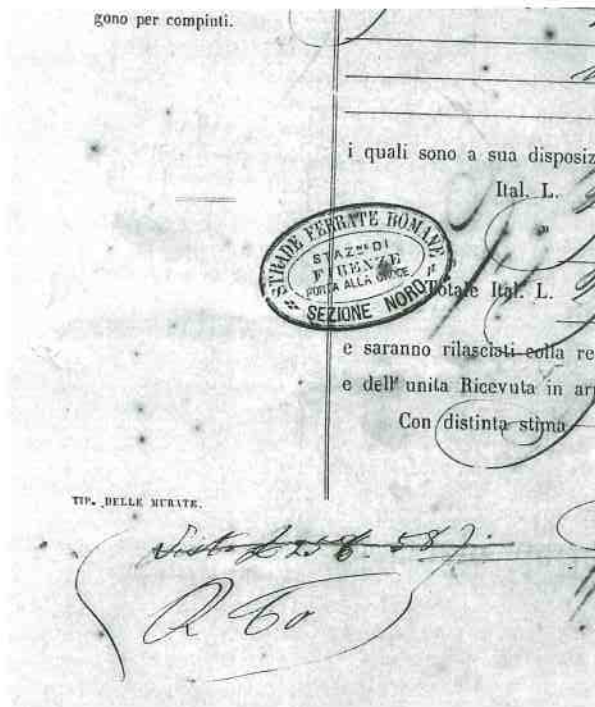 gono per compinti.
i quali sono a sua disposiz
Ital. L.
"
STRADE FERRATE ROMANE
STAZne DI
FIRENZE
PORTA ALLA CROCE
SEZIONE NORD
Totale Ital. L.
e saranno rilasciati colla re
e dell' unita Ricevuta in
Con distinta stima
TIP. DELLE MURATE.